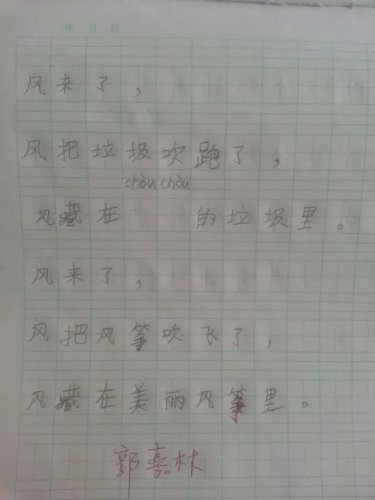 年 月 日
风来了，
风把垃圾吹跑了，
chòu chòu
风藏在 的垃圾里。
风来了，
风把风筝吹飞了，
风藏在美丽风筝里。
郭嘉林